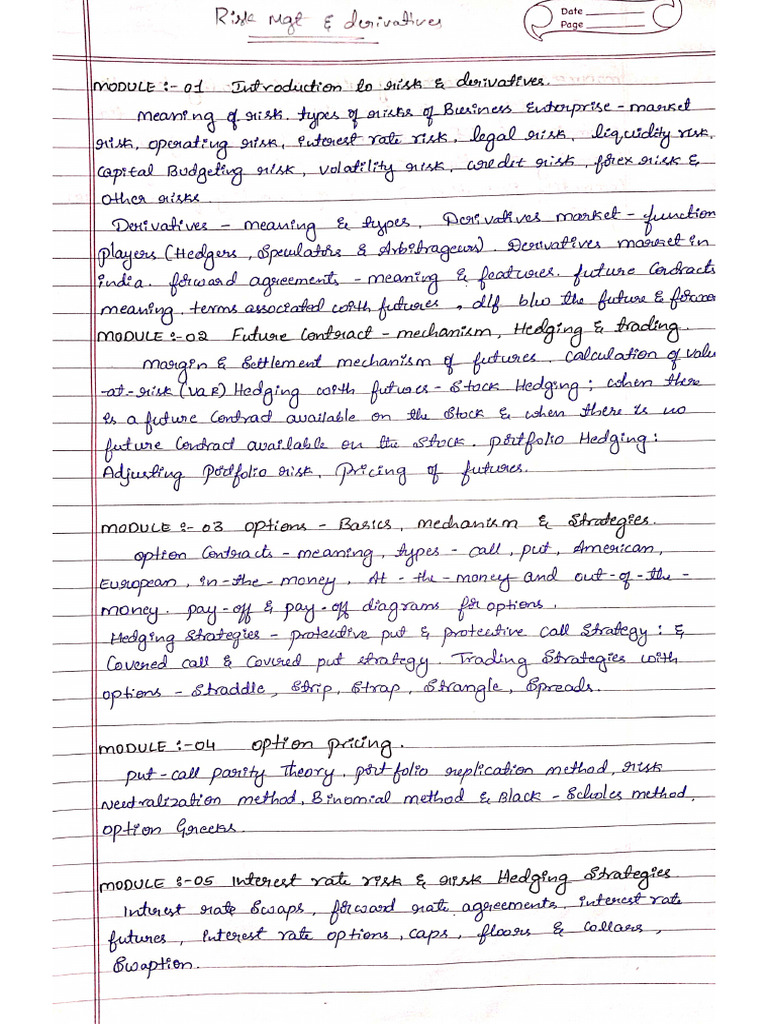 Risk Mgt & derivatives
Date
Page
MODULE :- 01 Introduction to risk & derivatives.
Meaning of risk. types of risks of Business Enterprise - market
risk, operating risk, interest rate risk, legal risk, liquidity risk,
Capital Budgeting risk, volatility risk, credit risk, forex risk &
other risks.
Derivatives - meaning & types, Derivatives market - function
players (Hedgers, Speculators & Arbitrageurs). Derivatives market in
india. forward agreements - meaning & features. future Contracts
meaning, terms associated with futures, d/f b/w the future & forwar
MODULE :- 02 Future Contract - mechanism, Hedging & trading.
Margin & Settlement mechanism of futures. Calculation of valu
-at-risk (VaR) Hedging with futures - Stock Hedging; when there
is a future Contract available on the Stock & when there is no
future Contract available on the Stock. portfolio Hedging:
Adjusting Portfolio risk, Pricing of futures.
MODULE :- 03 options - Basics, mechanism & Strategies.
option Contracts - meaning, types - call, put, American,
European, in-the-money, At-the-money and out-of-the-
money. pay-off & pay-off diagrams for options.
Hedging Strategies - protective put & protective call Strategy: &
Covered call & Covered put strategy. Trading Strategies with
options - Straddle, Strip, Strap, Strangle, Spreads.
MODULE :- 04 option pricing.
put-call parity theory. portfolio replication method, risk
Neutralization method, Binomial method & Black - Scholes method,
option Greeks.
MODULE :- 05 Interest rate risk & risk Hedging Strategies
Interest rate Swaps, forward rate agreements. interest rate
futures, Interest rate options, caps, floors & collars,
Swaption.